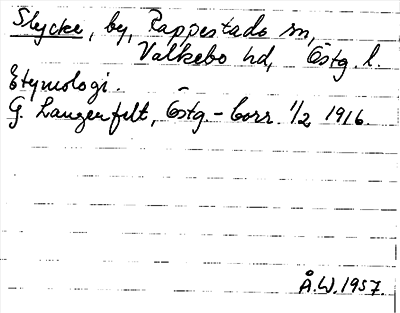 Slycke, by, Rappestads sn,
Valkebo hd, Östg. l.
Etymologi.
G. Langenfelt, Östg.-Corr. 1/2 1916.
Å.W. 1957.